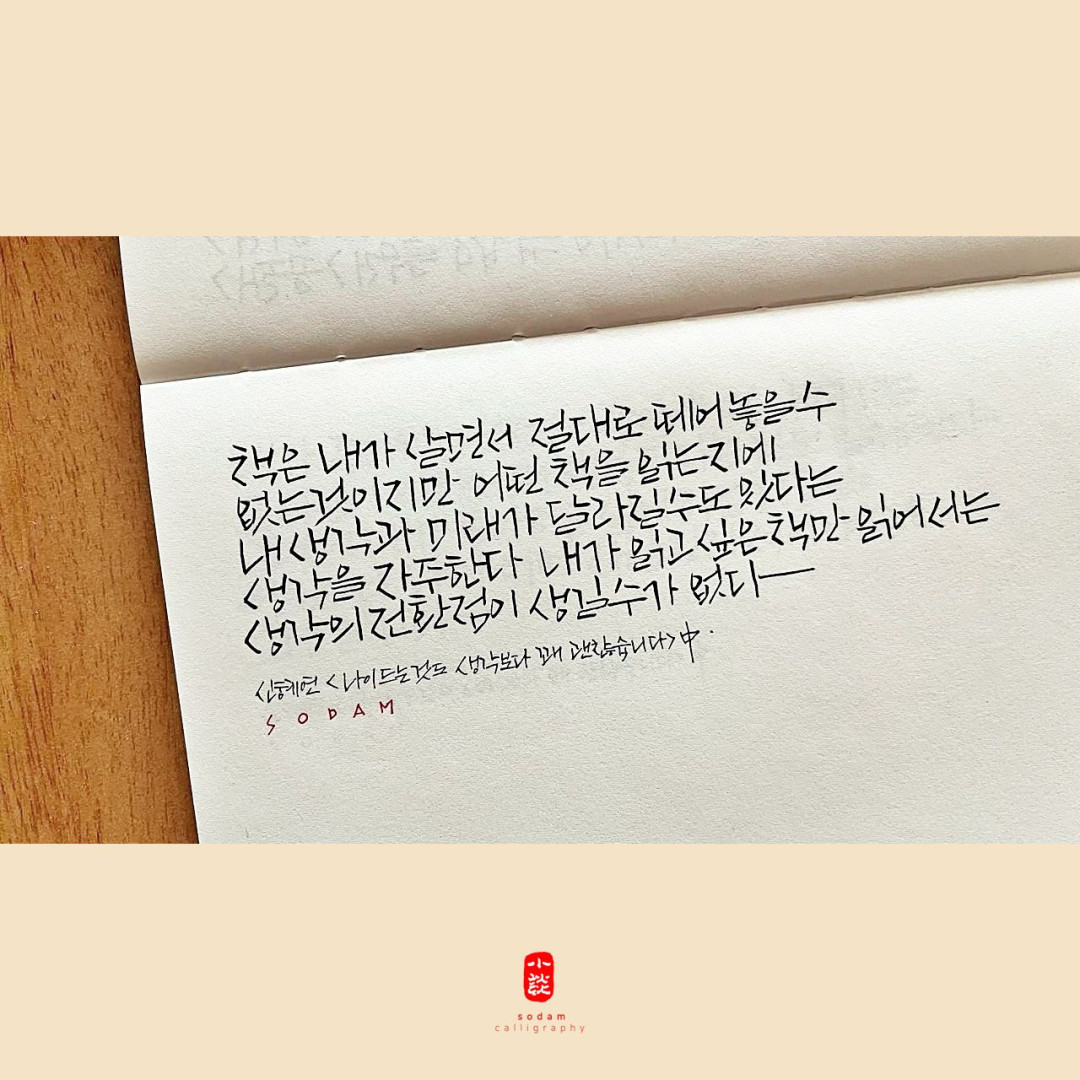 책은 내가 살면서 절대로 떼어놓을수
없는것이지만 어떤 책을 읽는지에
내생각과 미래가 달라질수도 있다는
생각을 자주한다 내가 읽고싶은책만 읽어서는
생각의전환점이 생길수가 없다—
신혜연 <나이드는것도 생각보다 꽤 괜찮습니다>中.
SODAM
小談
sodam
calligraphy